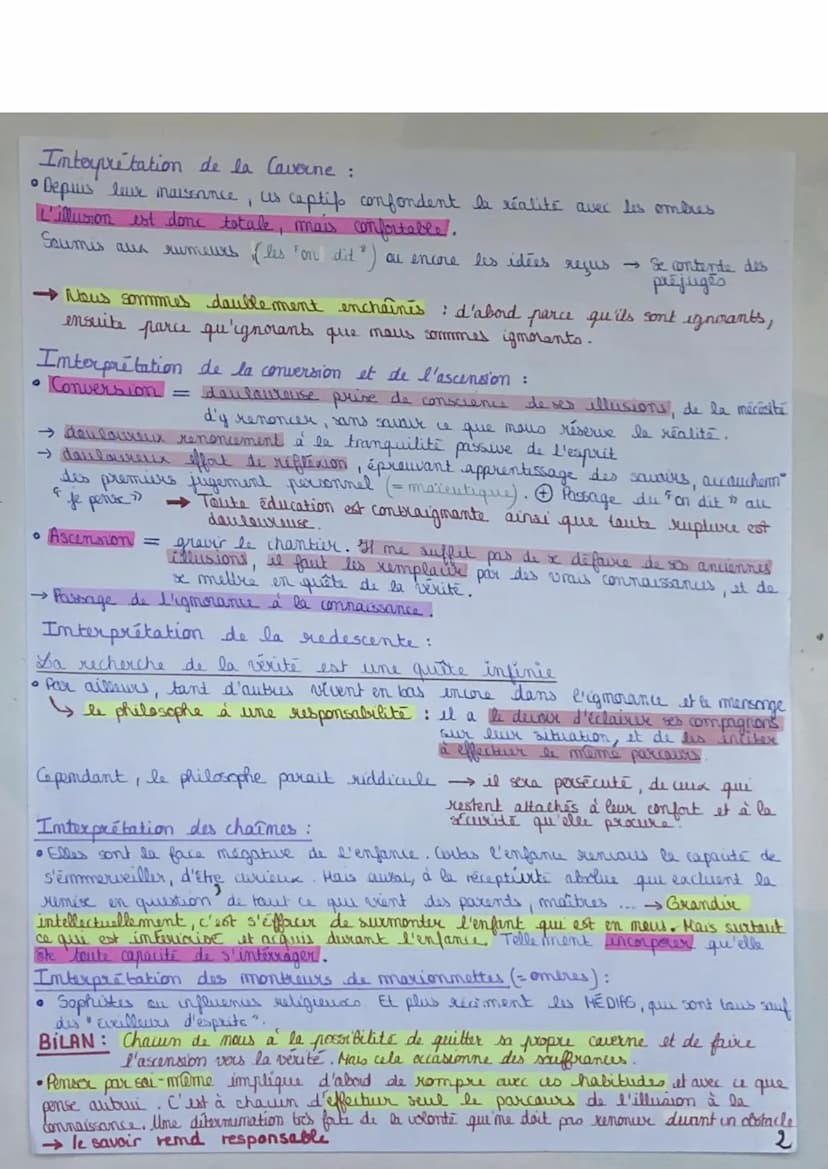 Interprétation de la Caverne :
• Depuis leur naissance, les captifs confondent la réalité avec les ombres
L'illusion est donc totale, mais confortable.
Soumis aux rumeurs (les "on dit") ou encore les idées reçus → Se contente des
préjugés
→ Nous sommes doublement enchaînés : d'abord parce qu'ils sont ignorants,
ensuite parce qu'ignorants que nous sommes ignorants.
Interprétation de la conversion et de l'ascension :
• Conversion = douloureuse prise de conscience de ses illusions, de la nécésité
d'y renoncer, sans savoir ce que nous réserve la réalité.
→ douloureux renoncement à la tranquilité passive de l'esprit
→ douloureux effort de réflexion, éprouvant apprentissage des savoirs, accouchem^nt
des premiers jugement personnel (= maïeutique). ⊕ Passage du "on dit" au
"je pense" → Toute éducation est contraignante ainsi que toute rupture est
douloureuse.
• Ascension = gravir le chantier. Il ne suffit pas de se défaire de ses anciennes
illusions, il faut les remplacer par des vrais connaissances, et de
se mettre en quête de la vérité.
→ Passage de l'ignorance à la connaissance.
Interprétation de la redescente :
La recherche de la vérité est une quête infinie
• Par ailleurs, tant d'autres vivent en bas encore dans l'ignorance et le mensonge
↳ le philosophe à une responsabilité : il a le devoir d'éclairer ses compagnons
sur leur situation, et de les inciter
à effectuer le même parcours.
Cependant, le philosophe parait riddicule → il sera persécuté, de ceux qui
restent attachés à leur confort et à la
sécurité qu'elle procure.
Interprétation des chaînes :
• Elles sont la face négative de l'enfance. Certes l'enfance renvoie la capacité de
s'émmerveiller, d'être curieux. Mais aussi, à la réceptivité absolue qui excluent la
remise en question de tout ce qui vient des parents, maîtres ... → Grandir
intellectuellement, c'est s'éfforcer de surmonter l'enfant qui est en nous. Mais surtout
ce qui est interiorisé et acquis durant l'enfance. Tellement incorporer qu'elle
ôte toute capacité de s'intérroger.
Interprétation des montreurs de marionnettes (= ombres) :
• Sophistes ou influences religieuses. Et plus réciment les MÉDIAS, qui sont tous sauf
des "éveilleurs d'esprits".
BiLAN : Chacun de nous à la possibilité de quitter sa propre caverne et de faire
l'ascension vers la vérité. Mais cela occasionne des souffrances.
• Penser par soi-même implique d'abord de rompre avec ces habitudes, et avec ce que
pense autrui. C'est à chacun d'effectuer seul le parcours de l'illusion à la
connaissance. Une détermination très forte de la volonté qui ne doit pas renoncer devant un obstacle
→ le savoir rend responsable
2